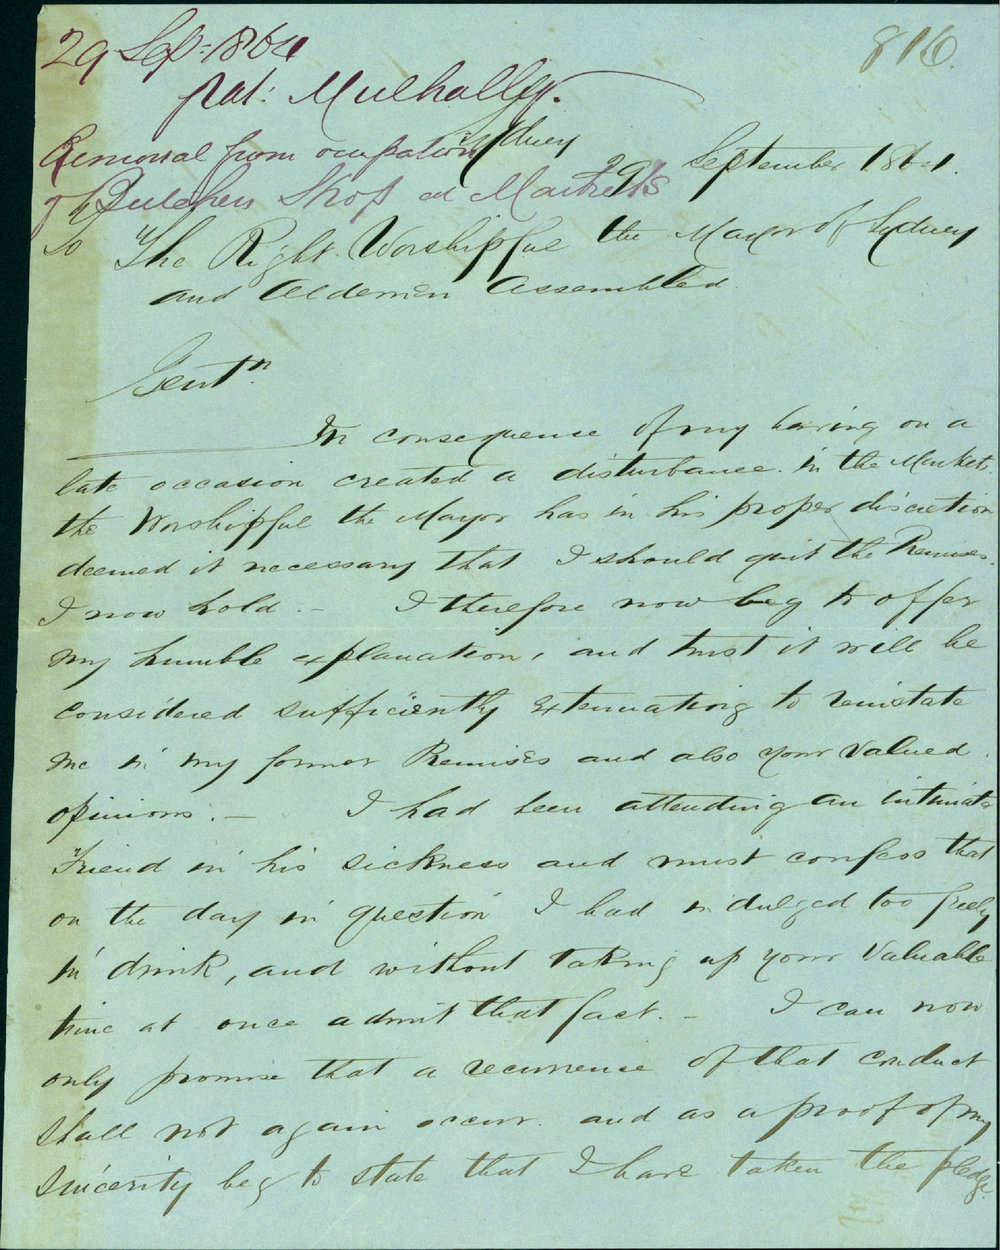 29 Sep: 1864
816.
Pat: Mulhally.
Removal from occupation
of Butchers Shop at Markets
Sydney
29th September 1864.
To The Right Worshipful the Mayor of Sydney
and Aldermen Assembled
Gentn
In consequence of my having on a
late occasion created a disturbance in the Market.
the Worshipful the Mayor has in his proper discretion
deemed it necessary that I should quit the Premises
I now hold. — I therefore now beg to offer
my humble explanation, and trust it will be
considered sufficiently extenuating to reinstate
me in my former Premises and also your valued
opinions. — I had been attending an intimate
Friend in his sickness and must confess that
on the day in question I had indulged too freely
in drink, and without taking up your valuable
time at once admit that fact. — I can now
only promise that a recurrence of that conduct
shall not again occur. and as a proof of my
sincerity beg to state that I have taken the pledge.